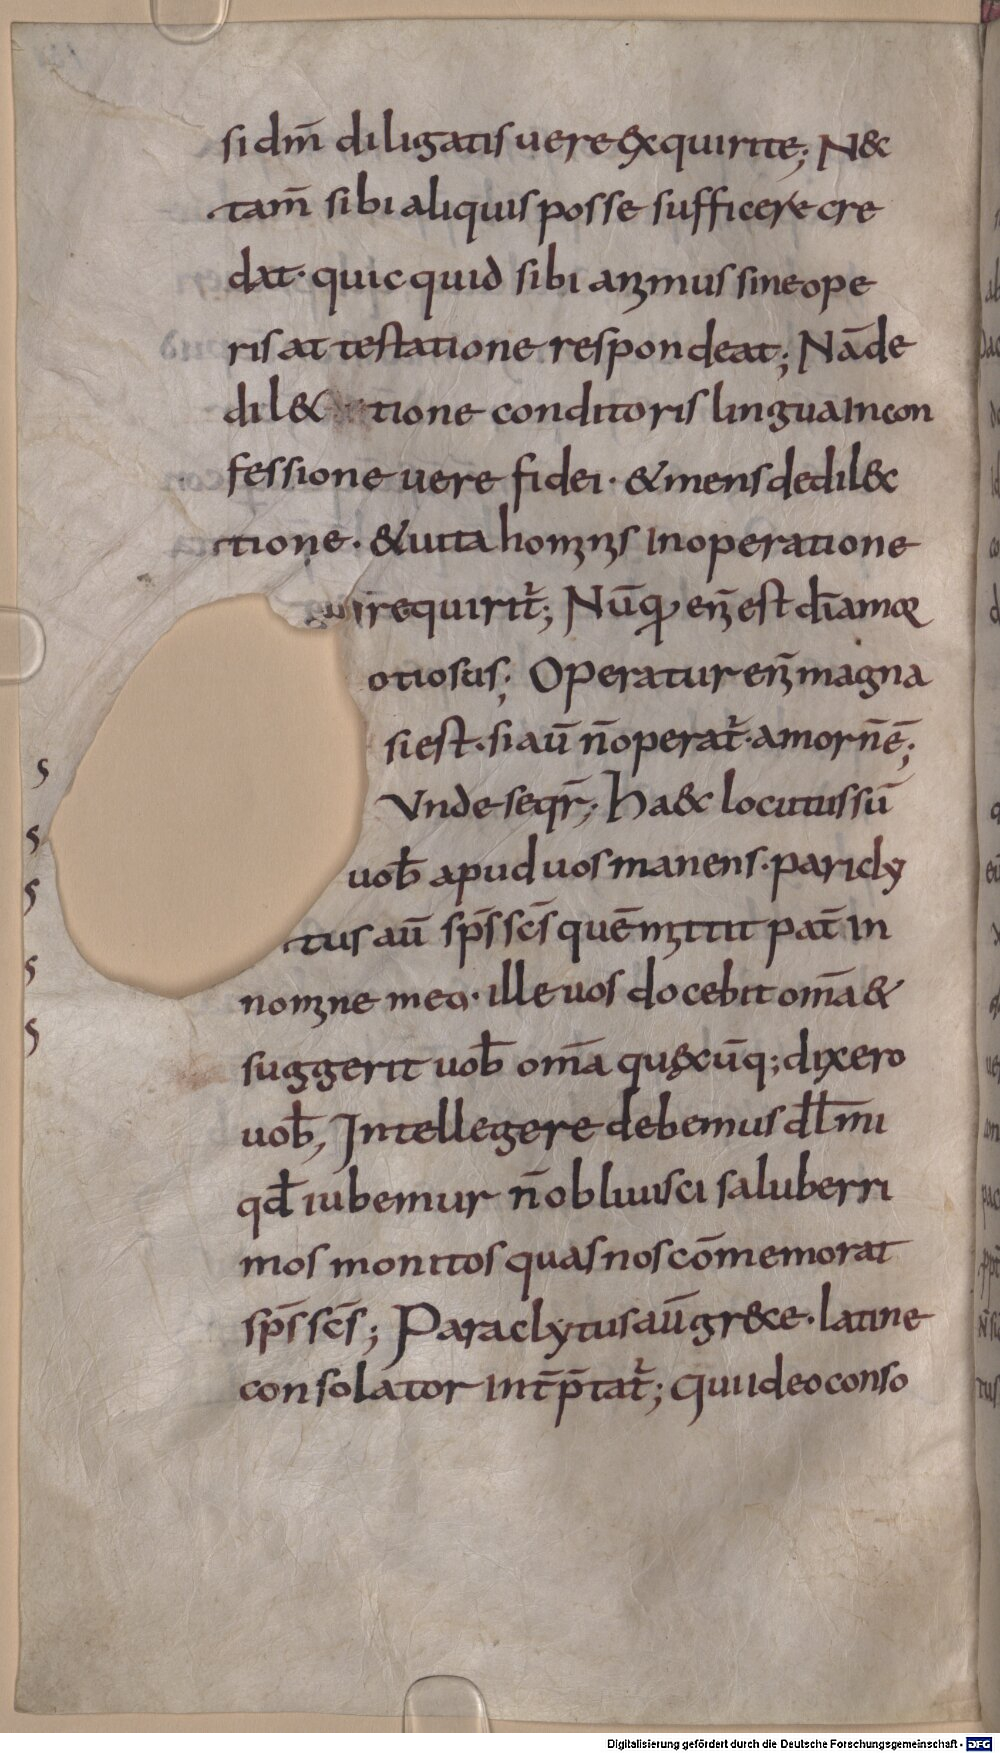 si dm̄ diligatis uere exquirite; N&
tam̄ sibi aliquis posse sufficere cre
dat· quicquid sibi animus sine ope
ris attestatione respondeat; Nā de
dil& tione conditoris lingua in con
fessione uere fidei· & mens de dil&c
tione· & uita hominis in operatione
requirit̄; Nūq̄ eni est dī amor
otiosus; Operatur eni magna
si est· si aū n̄ operat̄· amor n̄ ē;
Vnde seqr̄; Ha&c locutus sū
uob̄ apud uos manens· paricly
tus aū sp̄s sc̄s quē mittit pat̄ in
nomine meo· ille uos docebit om̄a &
suggerit uob̄ om̄a quęcūq; dixero
uob̄, Intellegere debemus dl̄ mi
qd̄ iubemur n̄ obliuisci saluberri
mos monitos quas nos cōmemorat
sp̄s sc̄s; Paraclytus aū gr&ce· latine
consolator int̄p̄tat̄; qui ideo conso
Digitalisierung gefördert durch die Deutsche Forschungsgemeinschaft - DFG